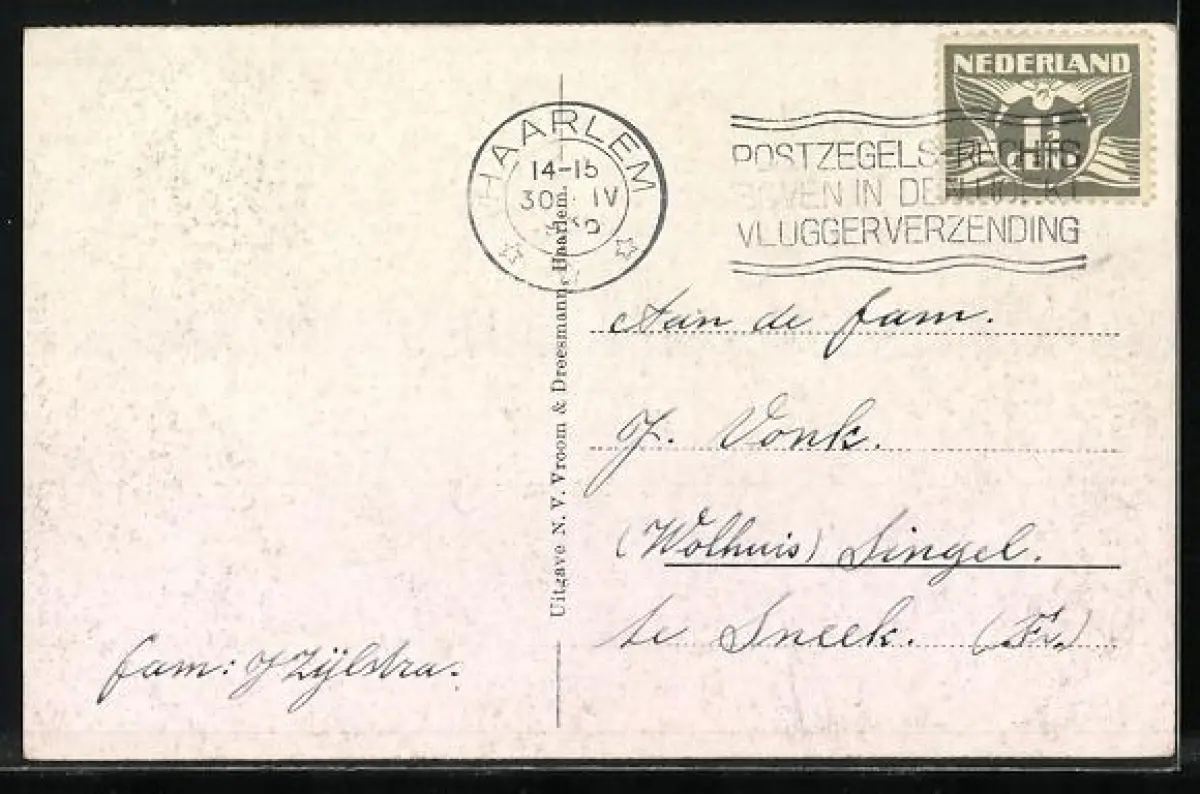 NEDERLAND
1½
CENT
HAARLEM
14-15
30 IV
POSTZEGELS RECHTS
BOVEN IN DE
VLUGGER VERZENDING
Uitgave N. V. Vroom & Dreesmann, Haarlem.
Aan de fam.
J. Vonk.
(Wolhuis) Singel.
te Sneek. (Fr.)
fam: J Zijlstra.